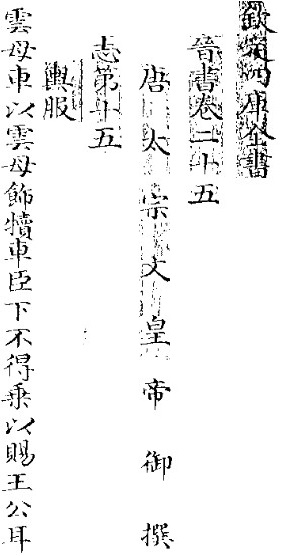 欽定四庫全書
晉書卷二十五
唐太宗文皇帝御撰
志第十五
輿服
雲母車以雲母飾犢車臣下不得乗以賜王公耳